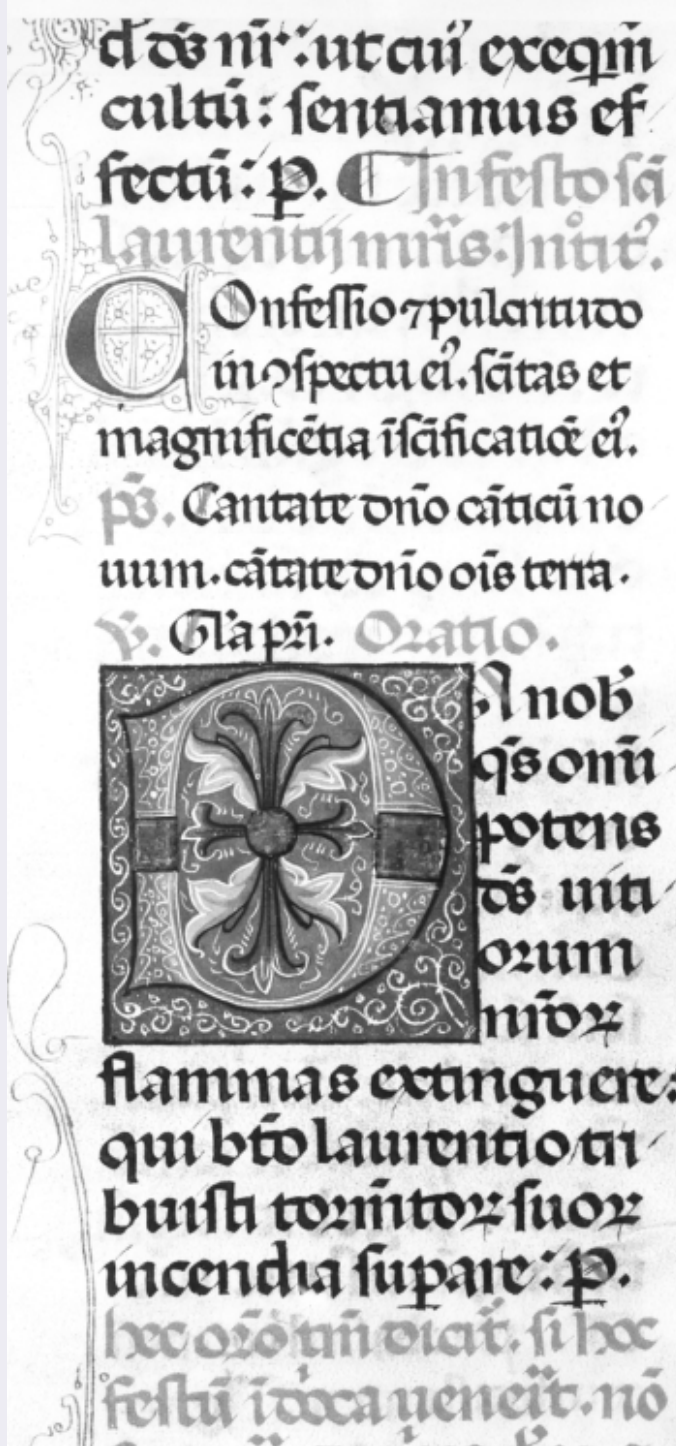 d ds nr̄: ut cuiꝰ exeqm̄
cultū: sentiamus ef
fectū: P. In festo sc̄i
laurentij mr̄is: Introitꝰ.
COnfessio ⁊ pulcritudo
in ꝯspectu eiꝰ. sc̄itas et
magnificētia ī sc̄ificatiōe eiꝰ.
ps̄. Cantate dn̄o cāticū no
uum. cātate dn̄o oīs terra.
v̄. Gl̄a pr̄i. Oratio.
DA nob̄
qs̄ omī
potens
ds̄ uiti
orum
nr̄oꝝ
flammas extinguere:
qui bt̄o laurentio tri
buisti torm̄toꝝ suoꝝ
incendia suꝑare: P.
hec orō tm̄ dicit̄. si hoc
festū ī dn̄ica uenerit. nō